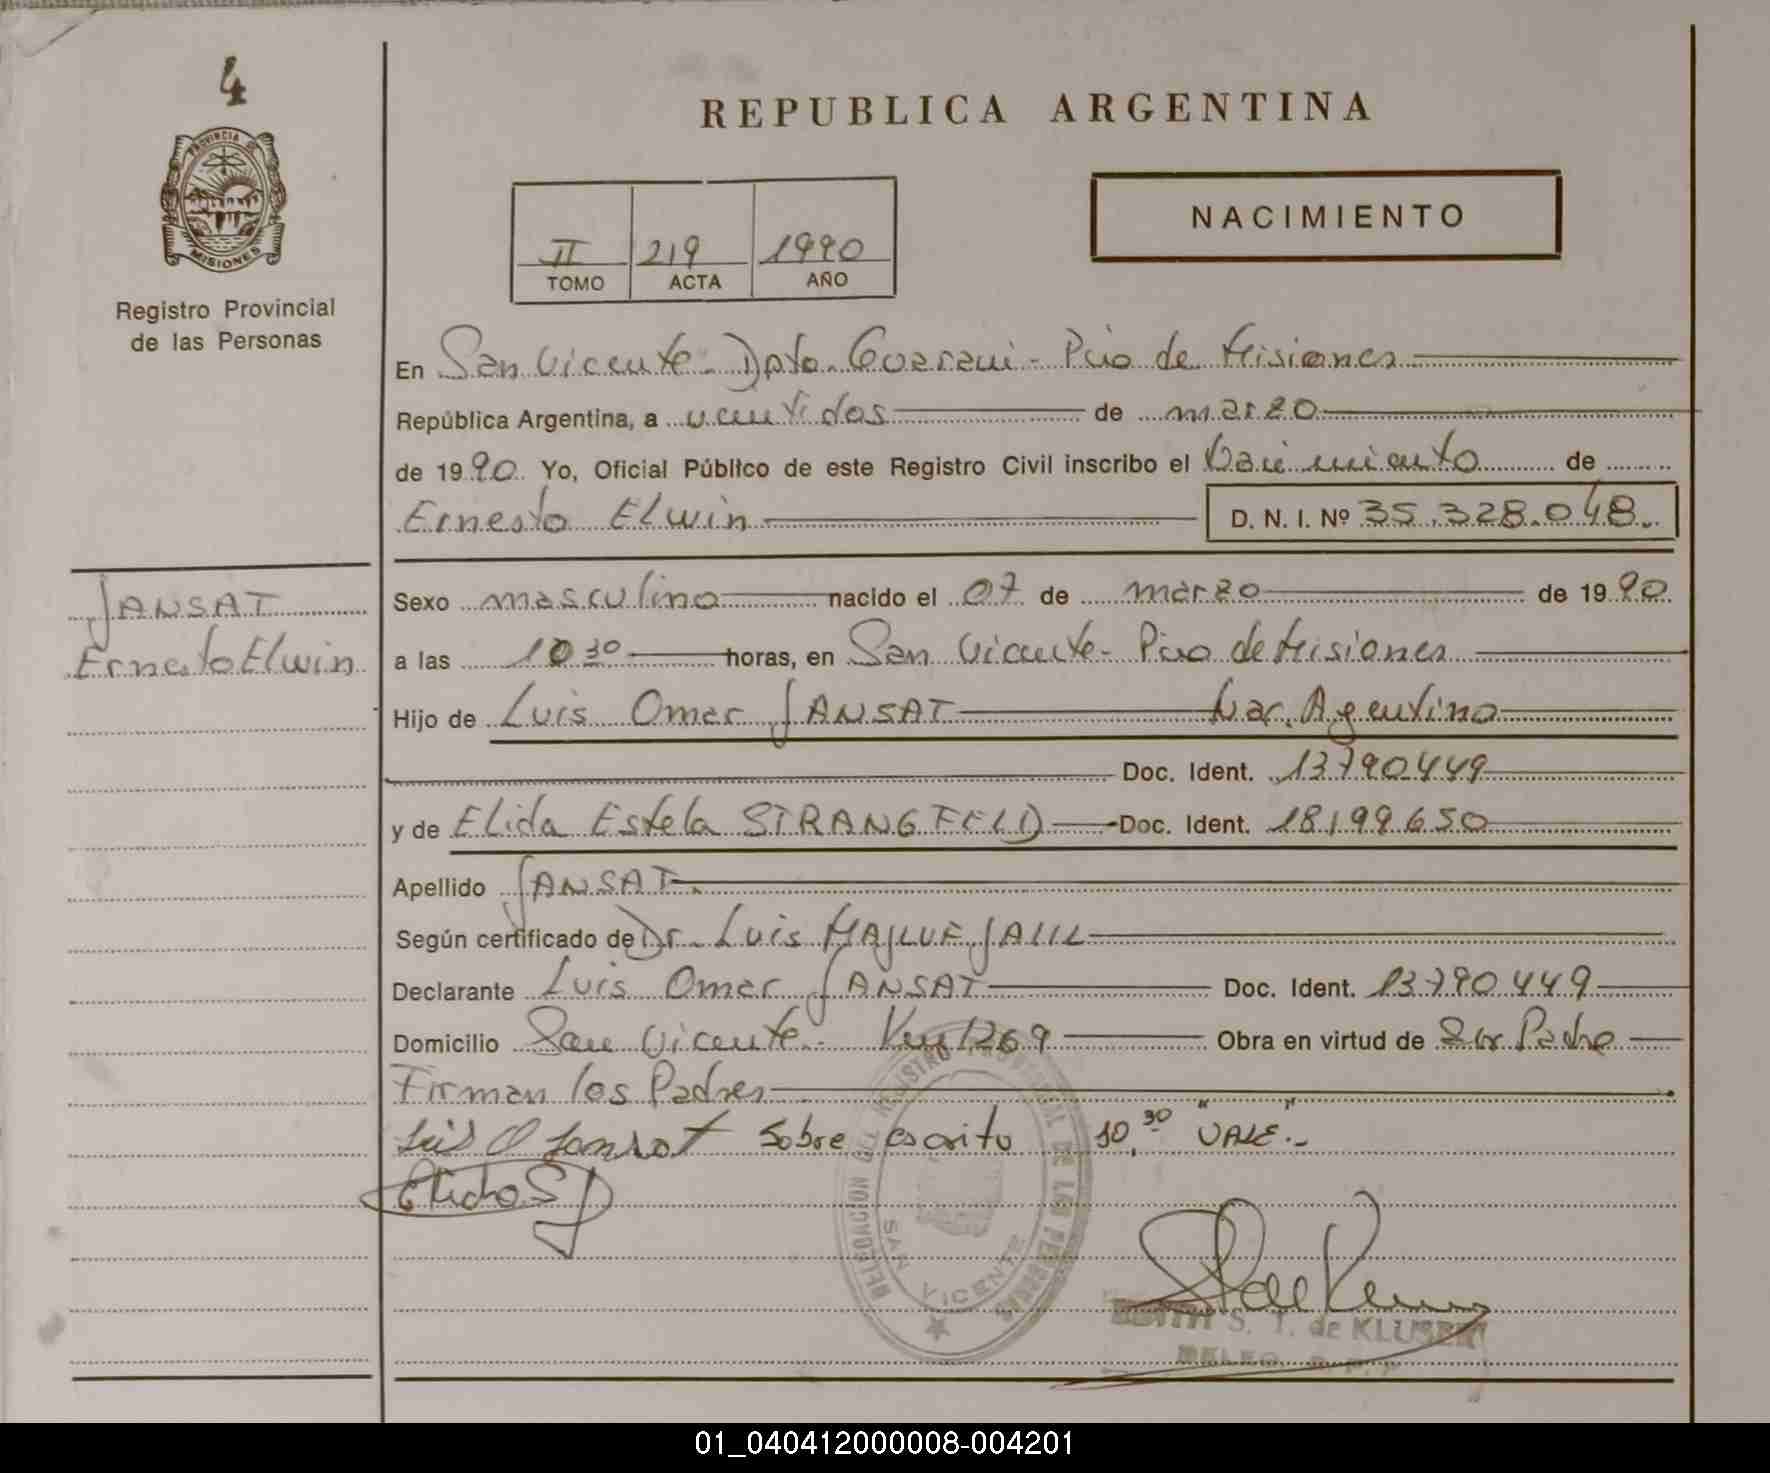 4
PROVINCIA DE
MISIONES
Registro Provincial
de las Personas
REPUBLICA ARGENTINA
NACIMIENTO
II 219 1990
TOMO ACTA AÑO
En San Vicente - Dpto. Guarani - Pcia de Misiones
República Argentina, a veintidos de marzo
de 1990. Yo, Oficial Público de este Registro Civil inscribo el Nacimiento de
Ernesto Elwin D. N. I. Nº 35.328.048.
JANSAT
Ernesto Elwin
Sexo masculino nacido el 07 de marzo de 1990
a las 10 30 horas, en San Vicente - Pcia de Misiones
Hijo de Luis Omar JANSAT Nac. Argentino
Doc. Ident. 13790449
y de Elida Estela STRANGFELD Doc. Ident. 18.199.650
Apellido JANSAT.
Según certificado de Dr. Luis JALIL
Declarante Luis Omar JANSAT Doc. Ident. 13790449
Domicilio San Vicente - Km 1269 Obra en virtud de Ser Padre
Firman los Padres
Luis O Jansat Sobre escrito 10,30 " " VALE.-
Elida S
DELEGACION DEL REGISTRO PROVINCIAL DE LAS PERSONAS
SAN VICENTE
EDITH S. T. de KLUSENER
01_040412000008-004201